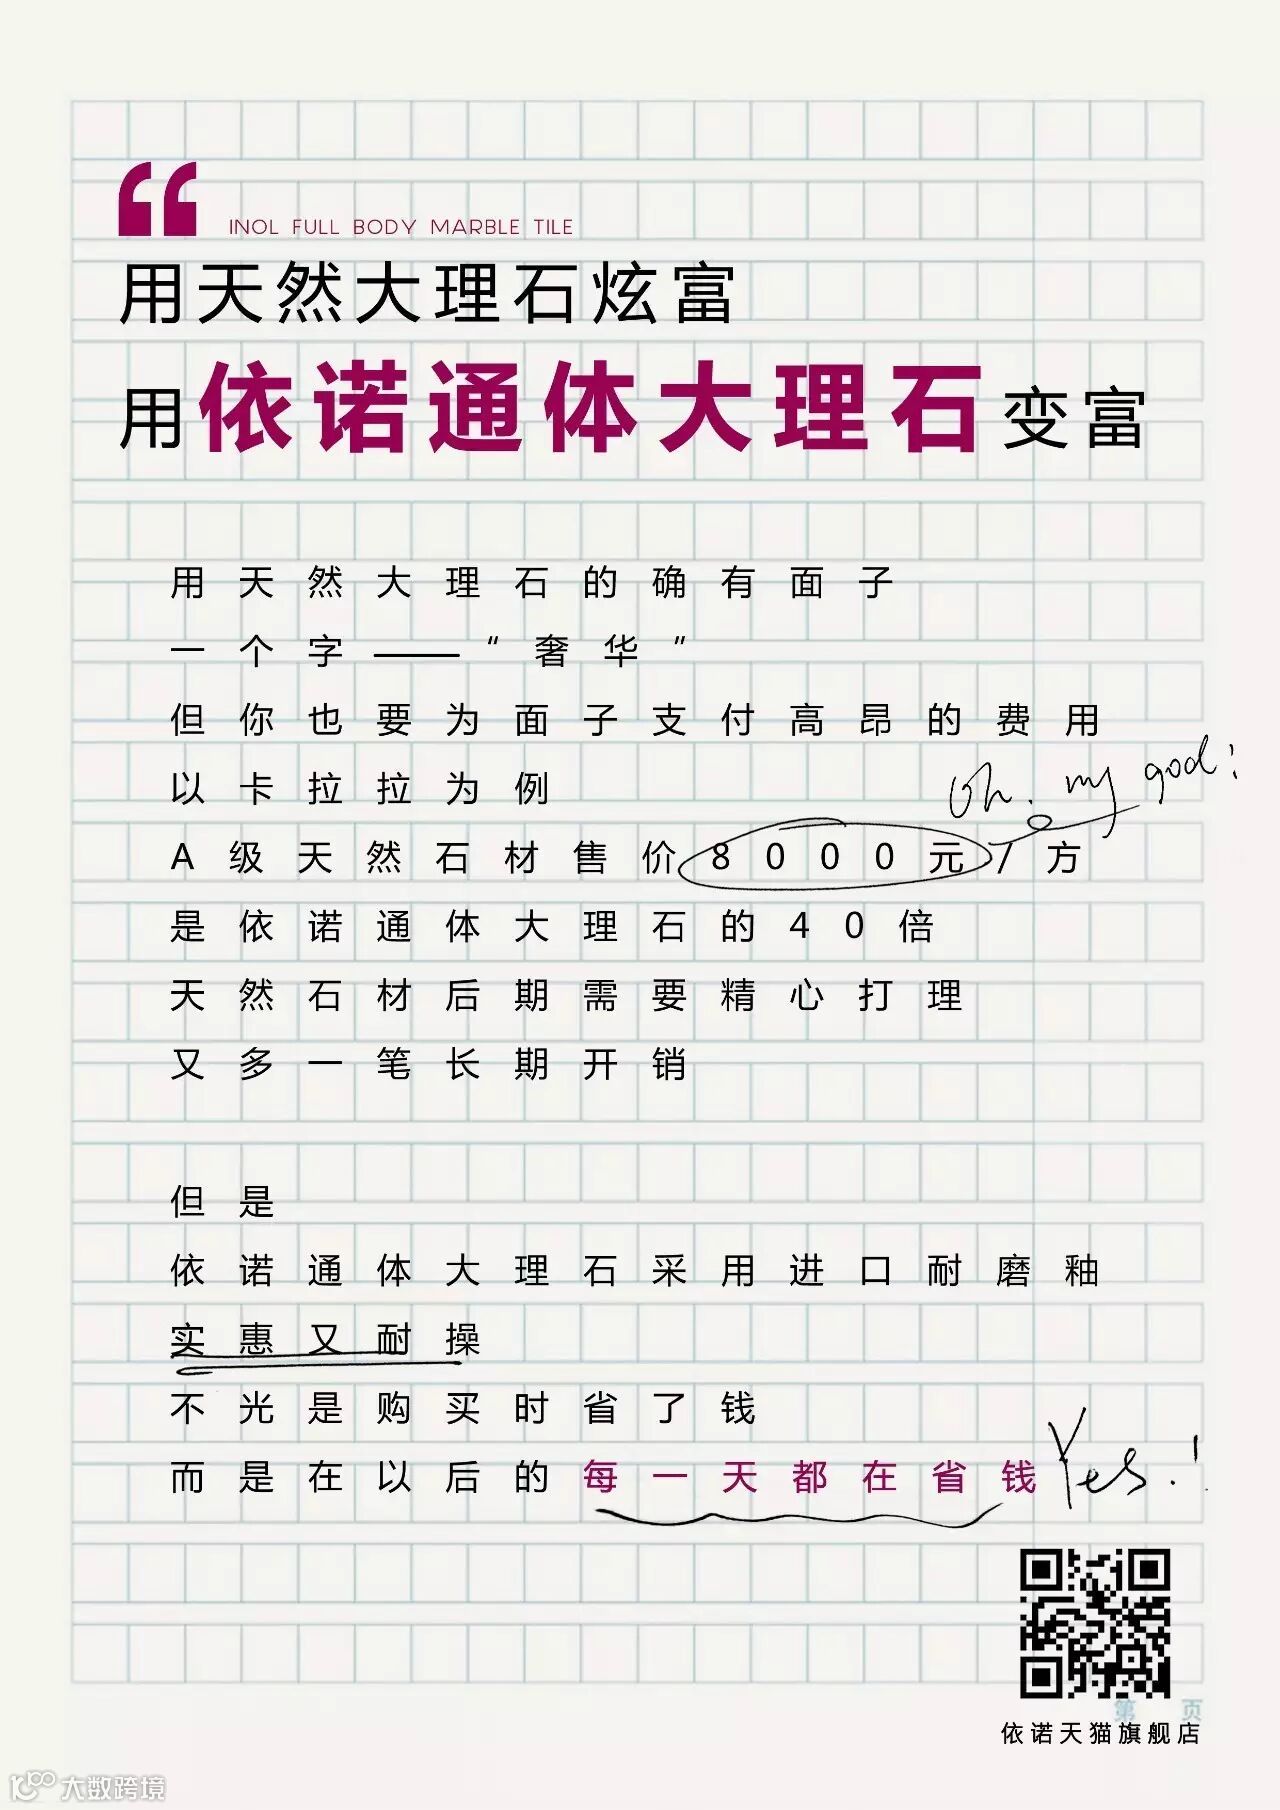 INOL FULL BODY MARBLE TILE
用天然大理石炫富
用依诺通体大理石变富
用天然大理石的确有面子
一个字——“奢华”
但你也要为面子支付高昂的费用
以卡拉拉为例
Oh. my god!
A级天然石材售价8000元/方
是依诺通体大理石的40倍
天然石材后期需要精心打理
又多一笔长期开销
但是
依诺通体大理石采用进口耐磨釉
实惠又耐操
不光是购买时省了钱
而是在以后的每一天都在省钱
Yes!
第 页
依诺天猫旗舰店
大数跨境